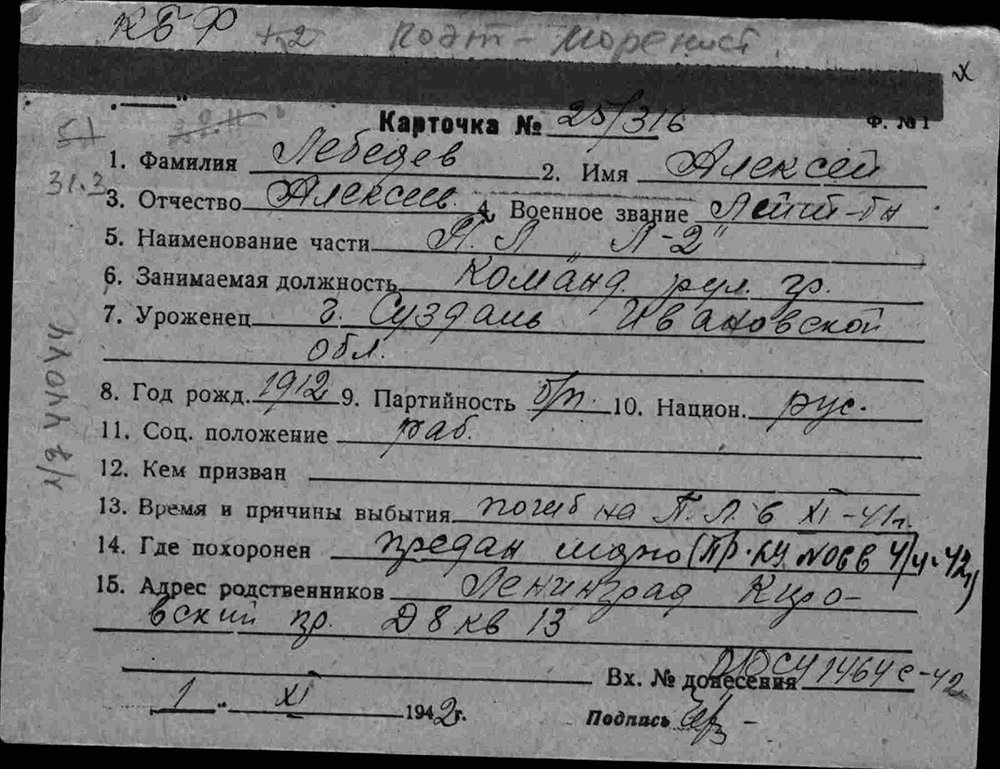 КБФ +2 Поэт - Моренист.
Карточка № 25/316 Ф. №1
57
31.3
1. Фамилия Лебедев 2. Имя Алексей
3. Отчество Алексеев. 4. Военное звание Лейт-òн
5. Наименование части П.Л "Л-2"
6. Занимаемая должность Команд. рул. гр.
7. Уроженец г. Суздаль Ивановской
обл.
8. Год рожд. 1912 9. Партийность б/п. 10. Национ. рус.
11. Соц. положение раб.
12. Кем призван
13. Время и причины выбытия погиб на П.Л. в XI-41г.
14. Где похоронен предан морю
15. Адрес родственников Ленинград Киро-
вский пр. Д 8 кв 13
Вх. № донесения 1464с-42
1 " XI 1942г. Подпись